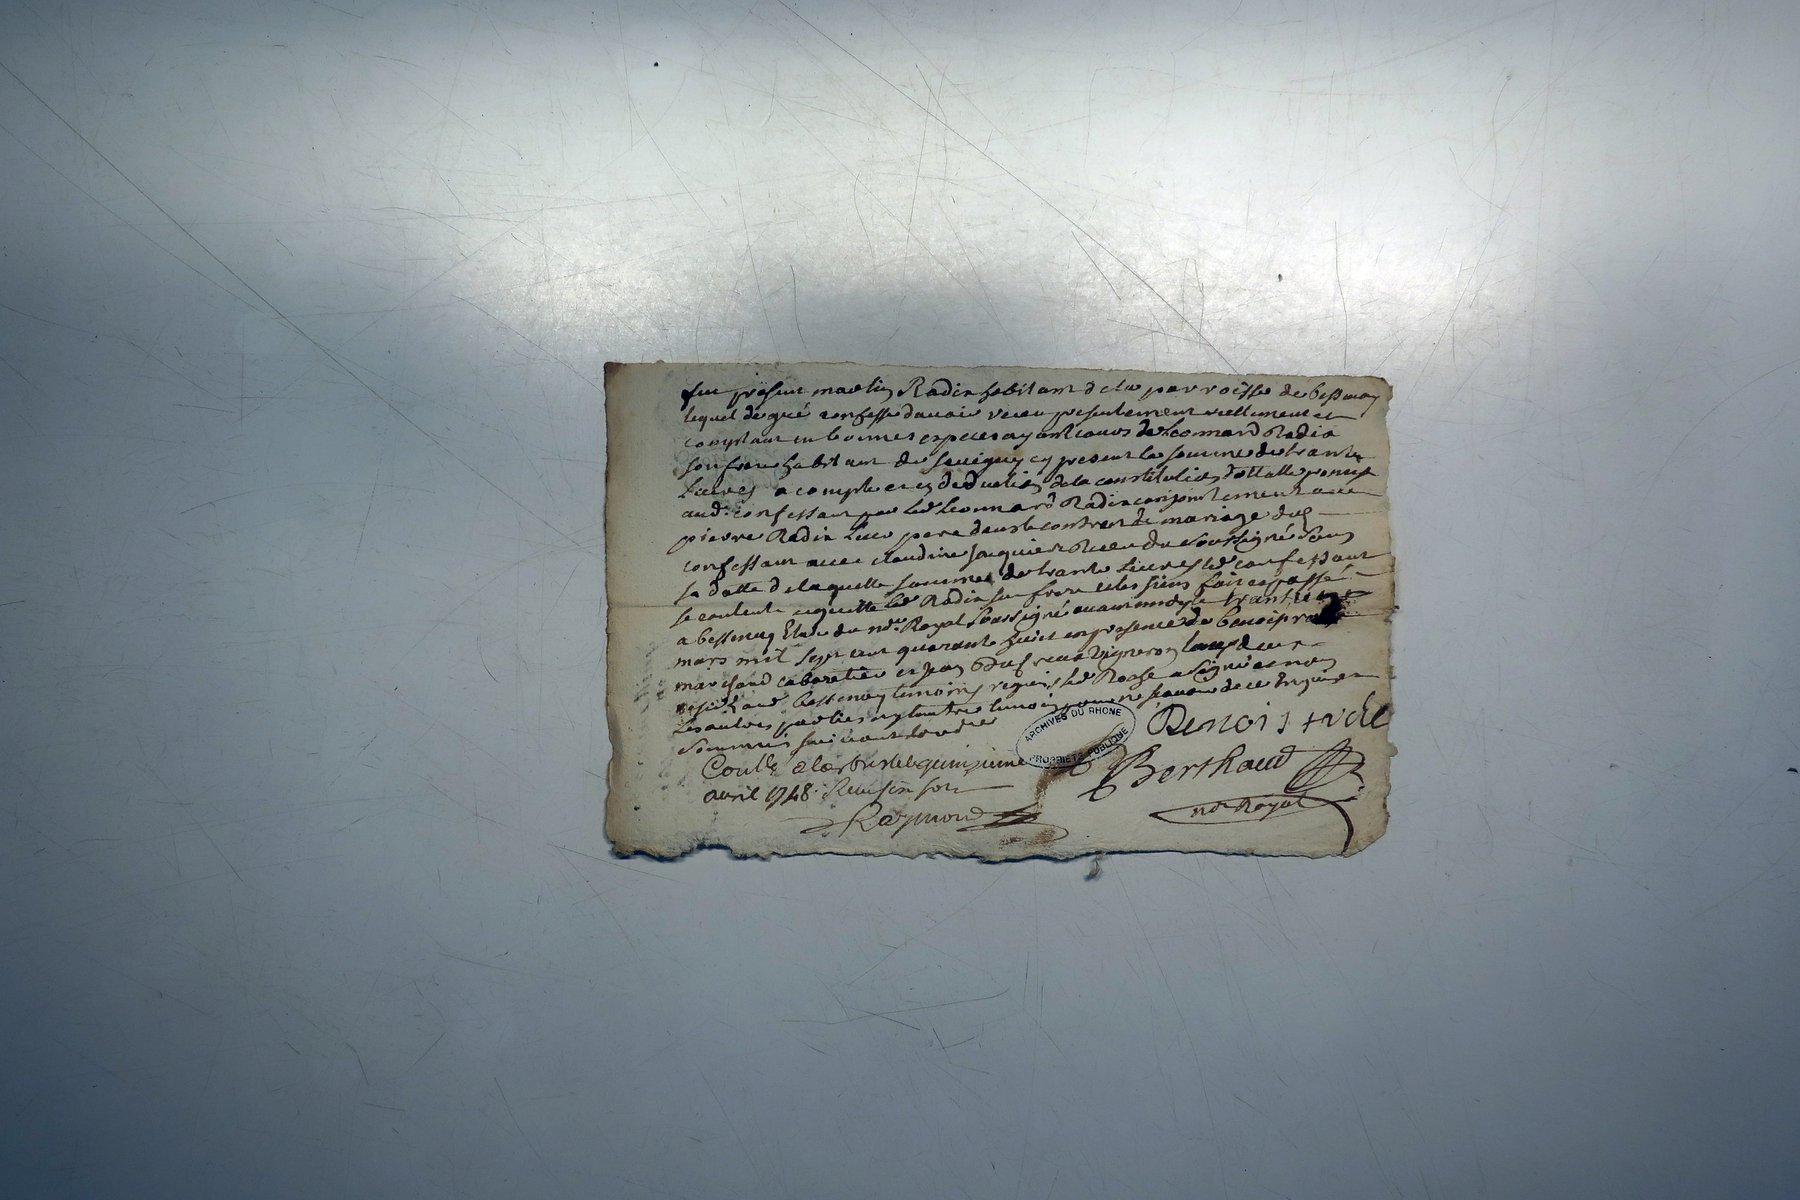 fut present martin Radix habitant de la parroisse de bessenay
lequel de gré confesse davoir receu presentement reellement et
comptant en bonnes especes ayant cours de Leonnard Radix
son frere habitant de savigny cy present la somme de trante
Livres a compte et en deduction de la constitution dottalle promise
aud. confessant par led Leonnard Radix conjointement avec
pierre Radix Leur pere dans le contrat de mariage dud
confessant avec claudine Jaquier Receu du soussigné sous
sa datte de laquelle somme de trante Livres led confessant
se contente et quitte led Radix son frere et les siens fait et passé
a bessenay Etude du nore Royal soussigné avant midy le trante
mars mil sept cent quarante huit en presence de benoist
marchand cabaretier et Jean vigneron tous deux
aud bessenay temoins requis led a signé et non
les autres parties ny lautre temoin pour ne scavoir de ce enquis et
sommés suivant lordre
ARCHIVES DU RHONE
PROPRIETE PUBLIQUE
Benoist
Conllé a Larbresle le quinzieme
avril 1748. Reçu six sols
Berthaud
Raymond
nore Royal